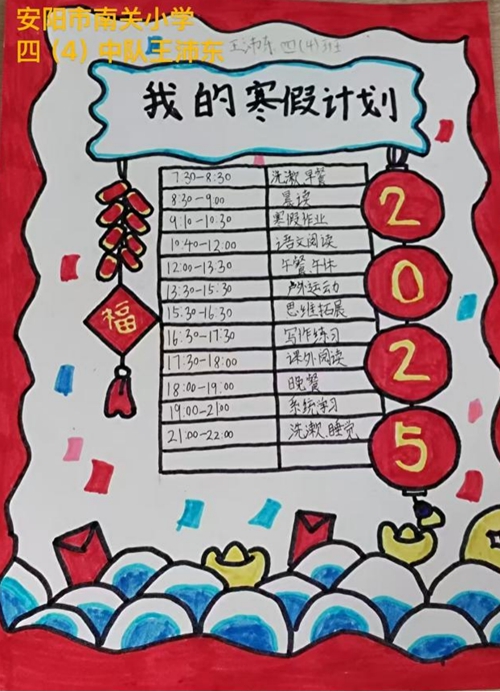 安阳市南关小学
四（4）中队王沛东
王沛东 四(4)班
我的寒假计划
7:30-8:30 洗漱.早餐
8:30-9:00 晨读
9:10-10:30 寒假作业
10:40-12:00 语文阅读
12:00-13:30 午餐.午休
13:30-15:30 户外运动
15:30-16:30 思维拓展
16:30-17:30 写作练习
17:30-18:00 课外阅读
18:00-19:00 晚餐
19:00-21:00 系统学习
21:00-22:00 洗漱.睡觉
2
0
2
5
福